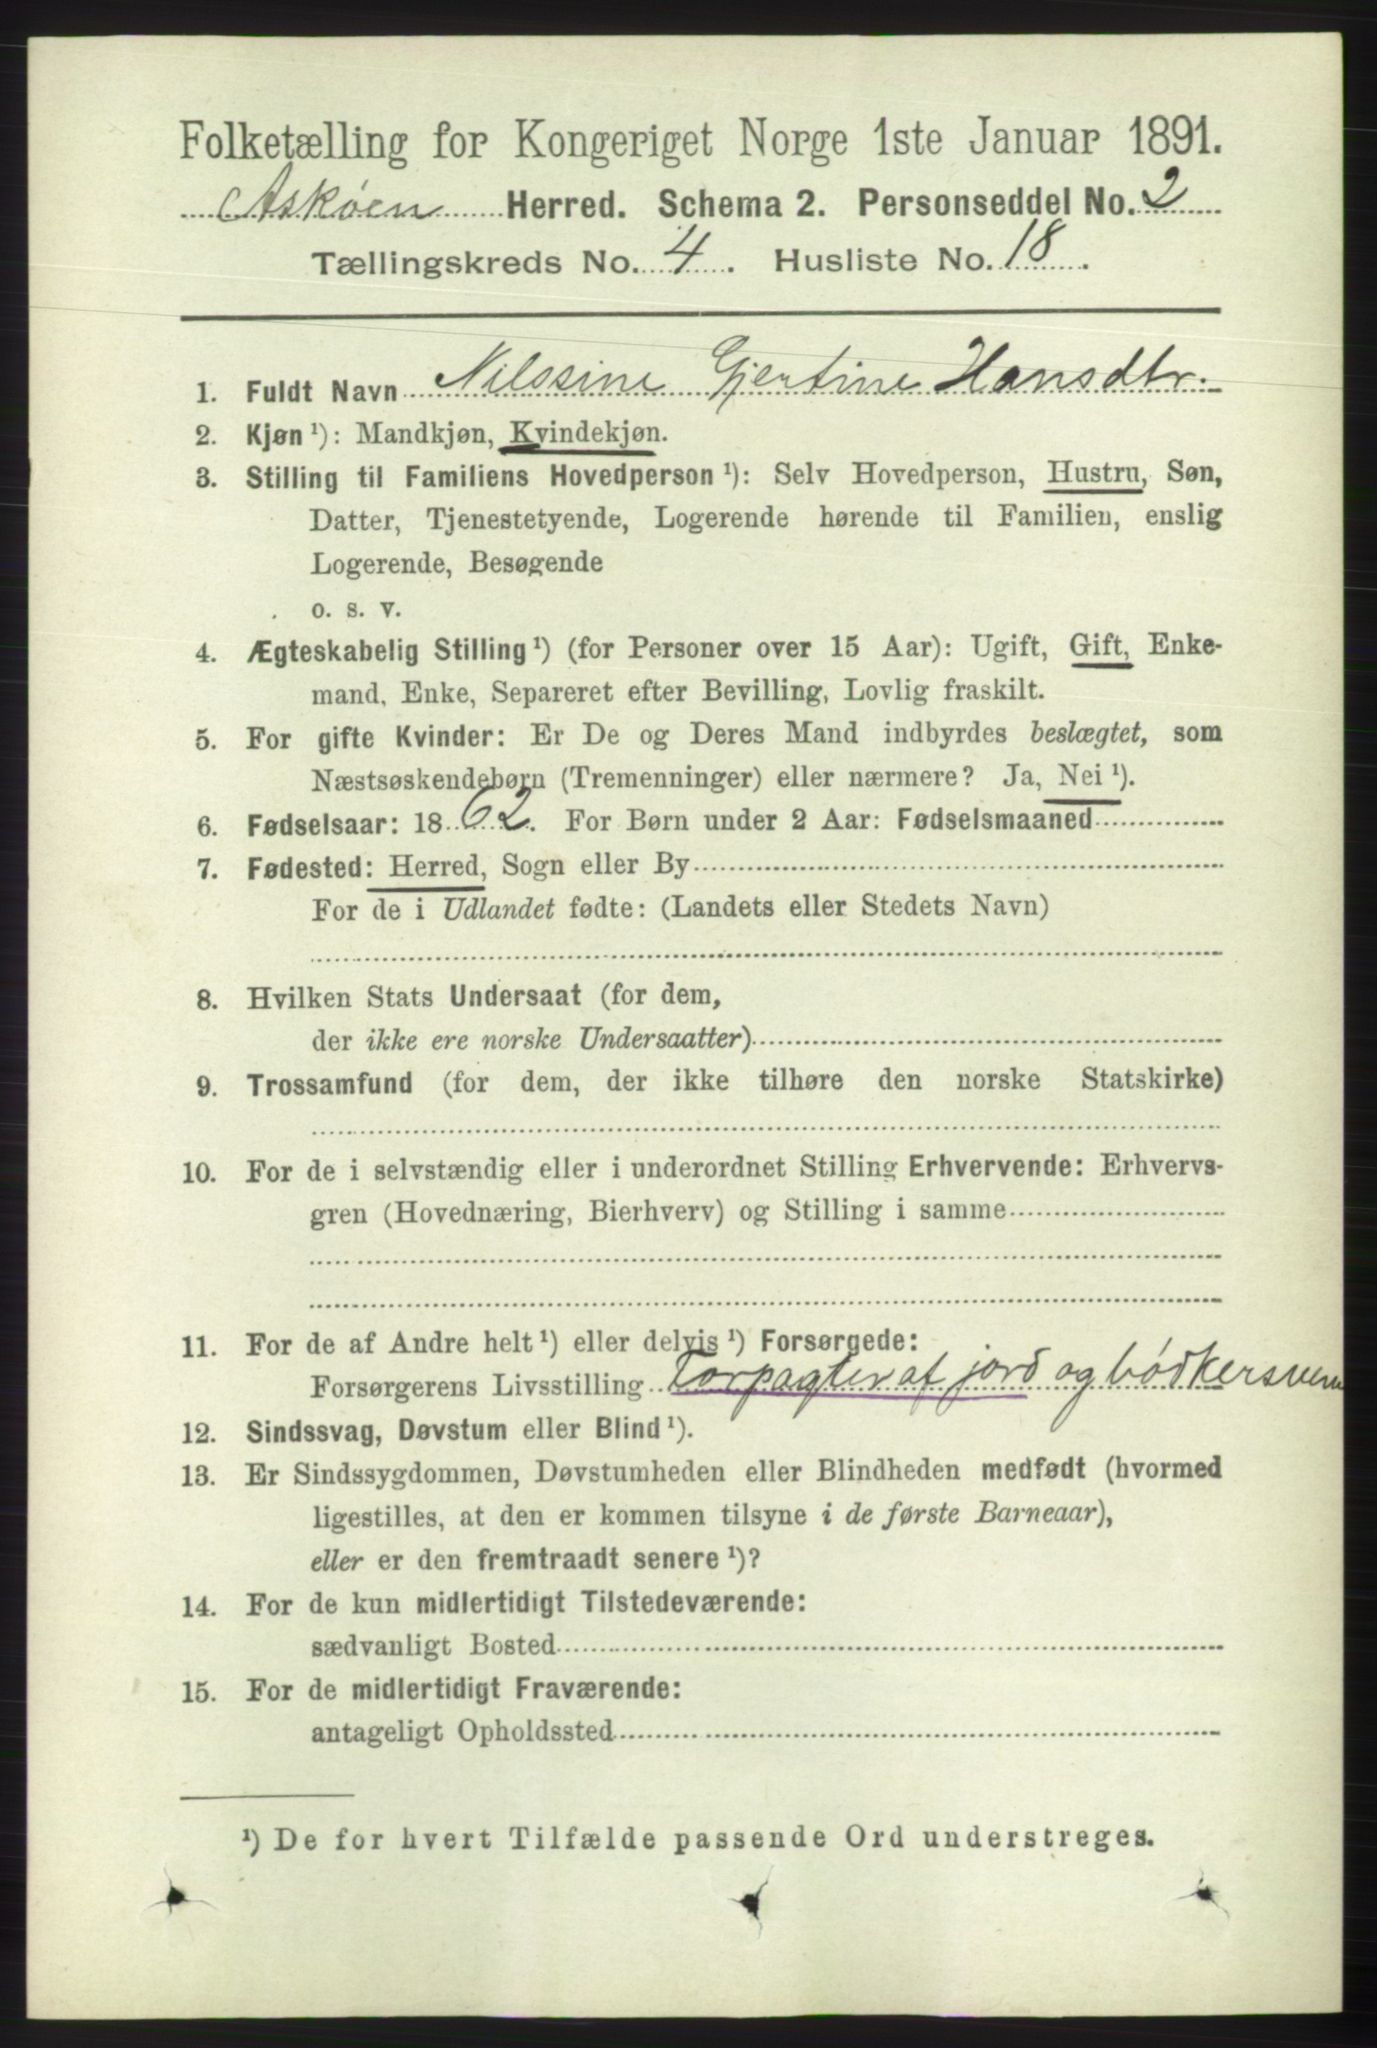 Folketælling for Kongeriget Norge 1ste Januar 1891.
Askøen Herred. Schema 2. Personseddel No. 2
Tællingskreds No. 4. Husliste No. 18.
1. Fuldt Navn Nilssine Gjertine Hansdtr.
2. Kjøn ¹): Mandkjøn, Kvindekjøn.
3. Stilling til Familiens Hovedperson ¹): Selv Hovedperson, Hustru, Søn,
Datter, Tjenestetyende, Logerende hørende til Familien, enslig
Logerende, Besøgende
o. s. v.
4. Ægteskabelig Stilling ¹) (for Personer over 15 Aar): Ugift, Gift, Enke-
mand, Enke, Separeret efter Bevilling, Lovlig fraskilt.
5. For gifte Kvinder: Er De og Deres Mand indbyrdes beslægtet, som
Næstsøskendebørn (Tremenninger) eller nærmere? Ja, Nei ¹).
6. Fødselsaar: 1862. For Børn under 2 Aar: Fødselsmaaned
7. Fødested: Herred, Sogn eller By
For de i Udlandet fødte: (Landets eller Stedets Navn)
8. Hvilken Stats Undersaat (for dem,
der ikke ere norske Undersaatter)
9. Trossamfund (for dem, der ikke tilhøre den norske Statskirke)
10. For de i selvstændig eller i underordnet Stilling Erhvervende: Erhvervs-
gren (Hovednæring, Bierhverv) og Stilling i samme
11. For de af Andre helt ¹) eller delvis ¹) Forsørgede:
Forsørgerens Livsstilling Forpagter af jord og bødkersvenn
12. Sindssvag, Døvstum eller Blind ¹).
13. Er Sindssygdommen, Døvstumheden eller Blindheden medfødt (hvormed
ligestilles, at den er kommen tilsyne i de første Barneaar),
eller er den fremtraadt senere ¹)?
14. For de kun midlertidigt Tilstedeværende:
sædvanligt Bosted
15. For de midlertidigt Fraværende:
antageligt Opholdssted
¹) De for hvert Tilfælde passende Ord understreges.